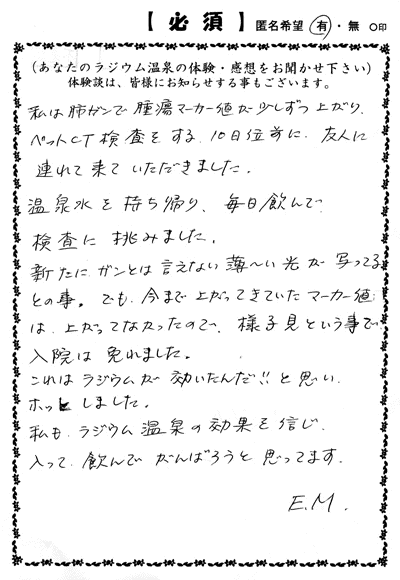 【必須】 匿名希望 有・無 ○印
(あなたのラジウム温泉の体験・感想をお聞かせ下さい)
体験談は、皆様にお知らせする事もございます。
私は肺ガンで腫瘍マーカー値が少しずつ上がり、
ペットCT検査をする、10日位前に、友人に
連れて来ていただきました。
温泉水を持ち帰り、毎日飲んで
検査に挑みました。
新たに、ガンとは言えない薄〜い光が写ってる
との事。でも、今まで上がってきていたマーカー値
は、上がってなかったので、様子見という事で
入院は免れました。
これはラジウムが効いたんだ!!と思い、
ホッとしました。
私も、ラジウム温泉の効果を信じ、
入って、飲んで がんばろうと思ってます。
E.M.